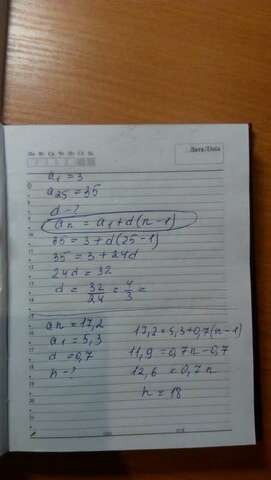 Пн Вт Ср Чт Пт Сб Вс
Дата/Data
a₁ = 3
a₂₅ = 35
d - ?
aₙ = a₁ + d(n - 1)
35 = 3 + d(25 - 1)
35 = 3 + 24d
24d = 32
d = 32/24 = 4/3 =
aₙ = 17,2
a₁ = 5,3
d = 0,7
n - ?
17,2 = 5,3 + 0,7(n - 1)
11,9 = 0,7n - 0,7
12,6 = 0,7n
n = 18